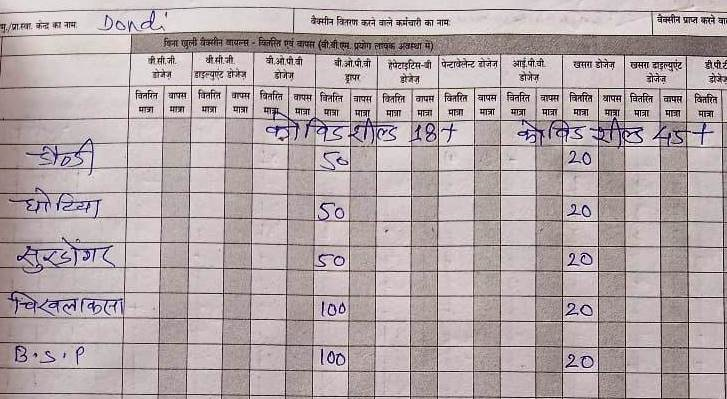 मु./प्रा.स्वा. केन्द्र का नाम Dondi वैक्सीन वितरण करने वाले कर्मचारी का नाम वैक्सीन प्राप्त करने वा
बिना खुली वैक्सीन वायल्स - वितरित एवं वापस (वी.वी.एम. प्रयोग लायक अवस्था में)
बी.सी.जी. डोजेज़ बी.सी.जी. डाइल्युएंट डोजेज़ बी.ओ.पी.वी डोजेज़ बी.ओ.पी.वी ड्रापर हेपेटाइटिस-बी डोजेज़ पेन्टावेलेन्ट डोजेज़ आई.पी.वी. डोजेज़ खसरा डोजेज़ खसरा डाइल्युएंट डोजेज़ डी.पी.टी डोजेज़
वितरित मात्रा वापस मात्रा वितरित मात्रा वापस मात्रा वितरित मात्रा वापस मात्रा वितरित मात्रा वापस मात्रा वितरित मात्रा वापस मात्रा वितरित मात्रा वापस मात्रा वितरित मात्रा वापस मात्रा वितरित मात्रा वापस मात्रा वितरित मात्रा वापस मात्रा वितरित मात्रा
कोविडशील्ड 18+ कोविडशील्ड 45+
डौन्डी 50 20
घोटिया 50 20
सुरडोंगर 50 20
चिखलाकसा 100 20
B.S.P 100 20